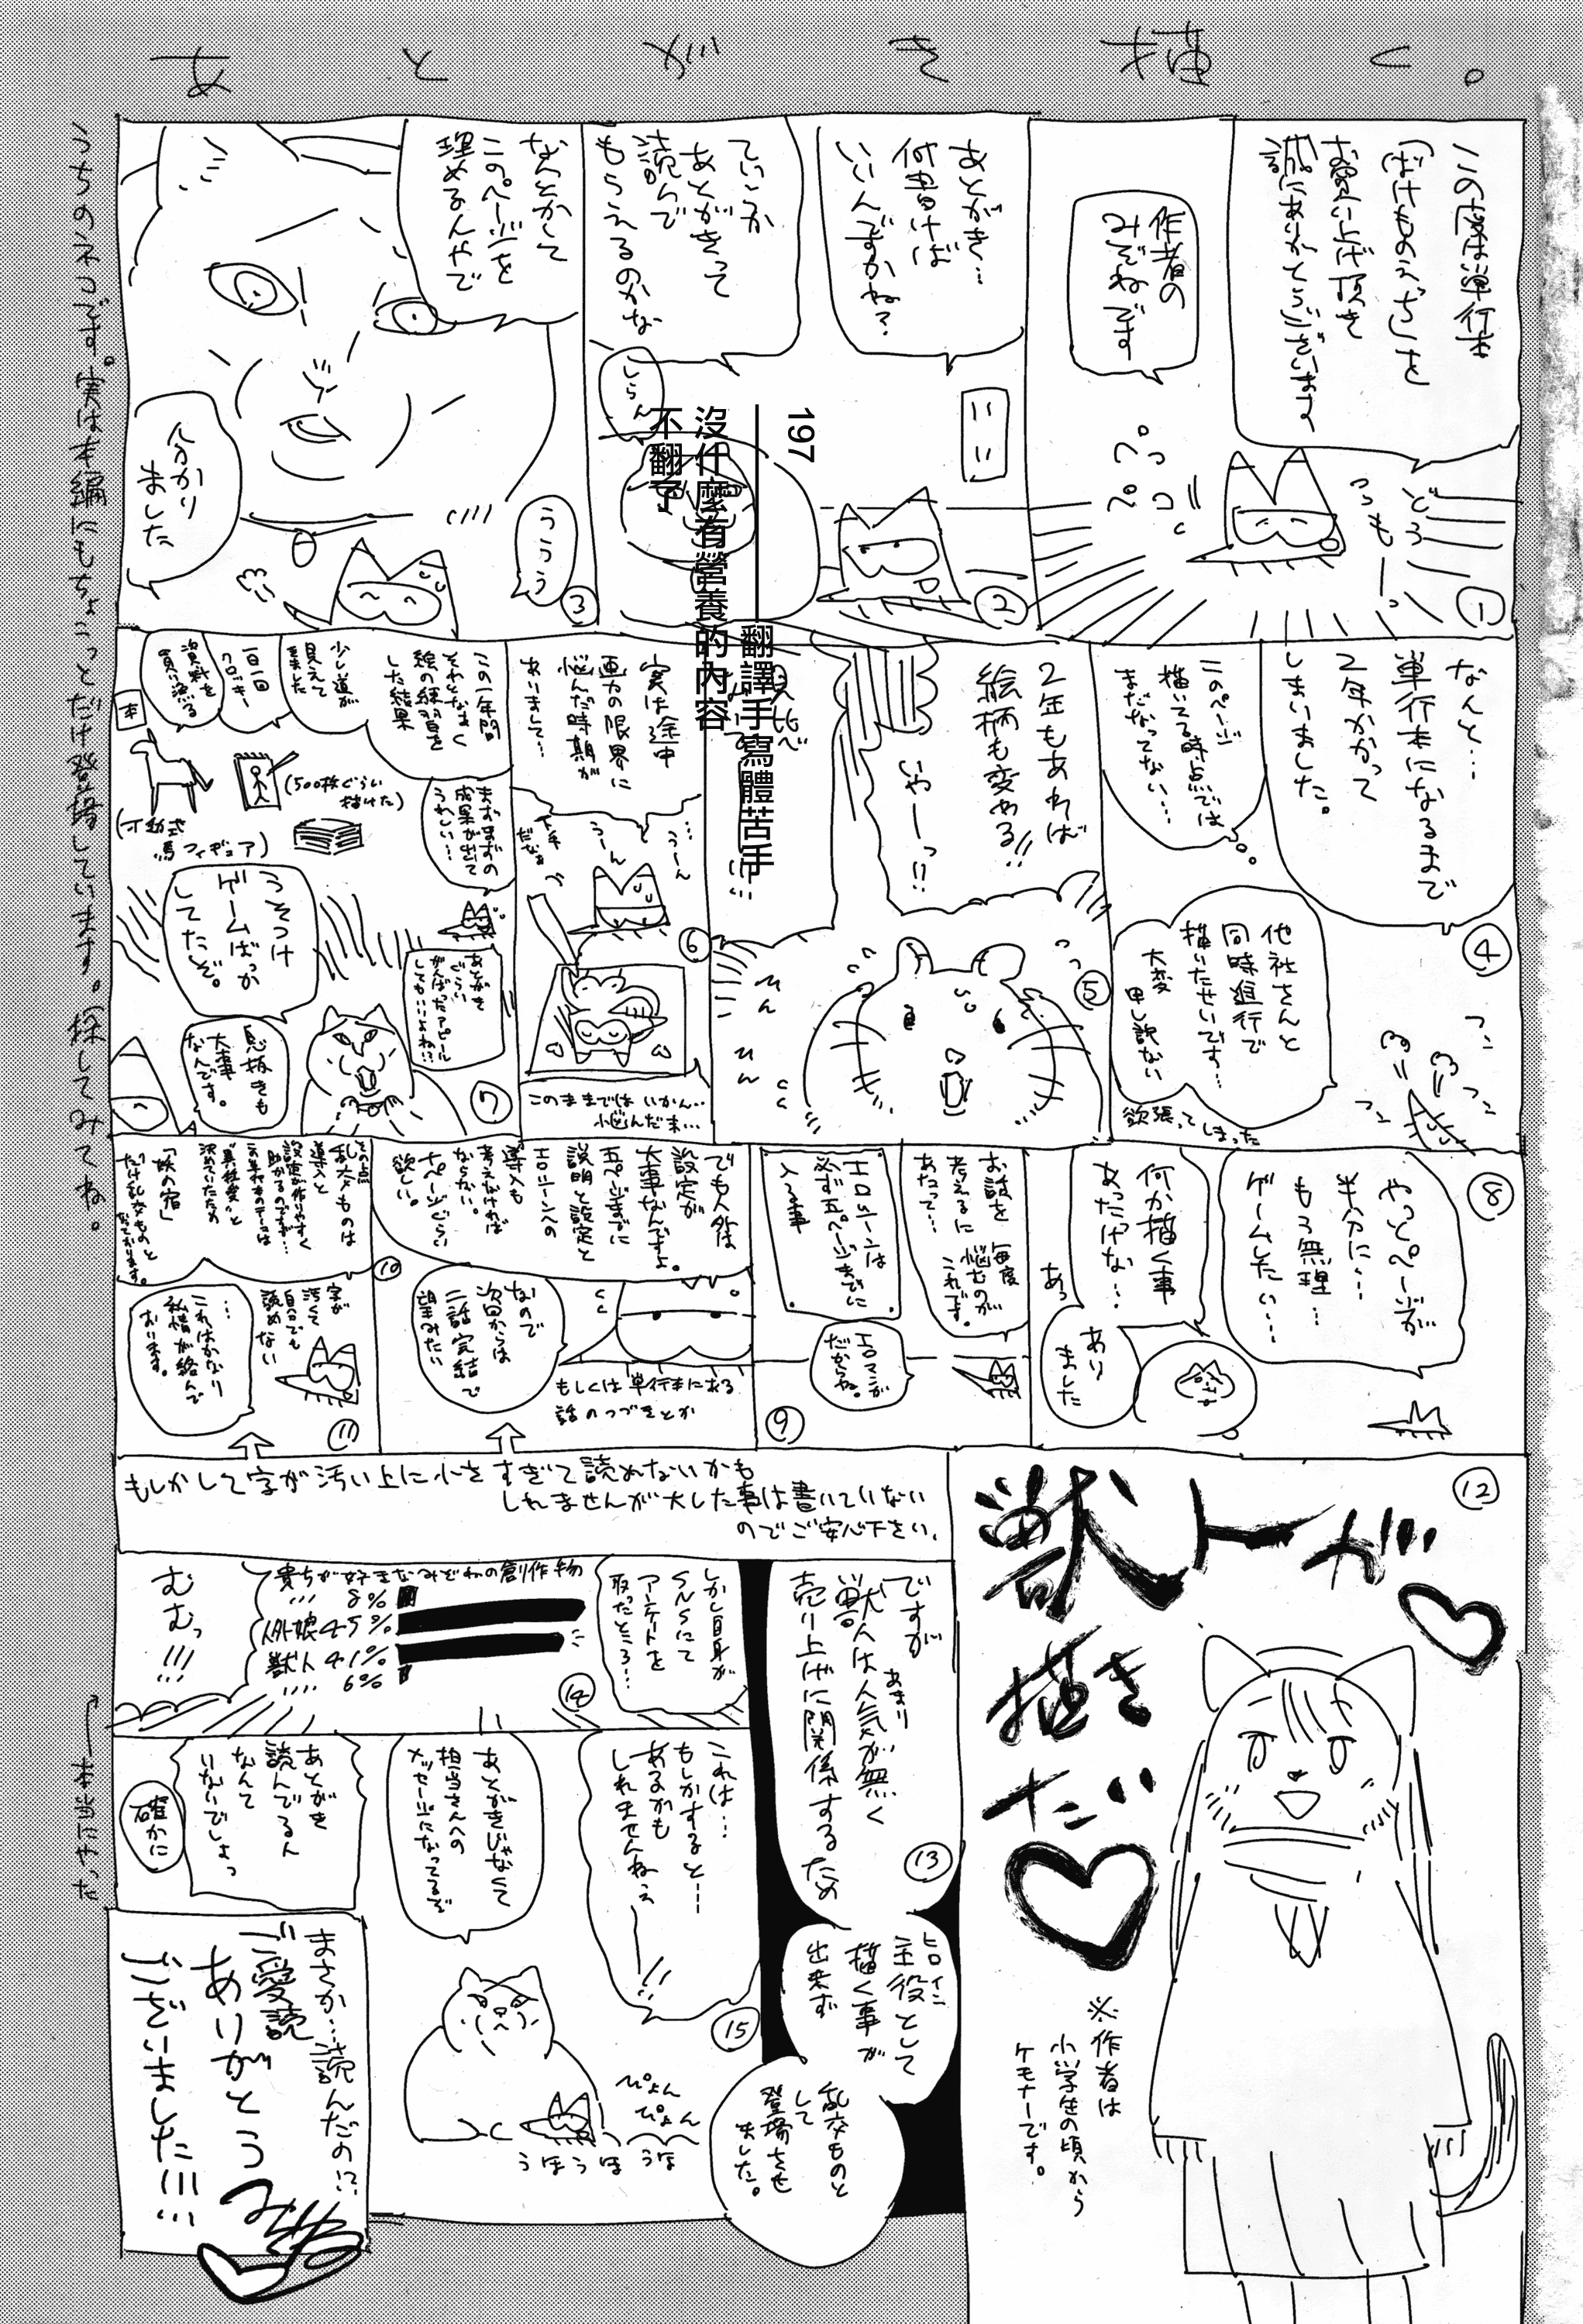 あとがき描く。
この度は単行本
「ばけものえぢち」を
お買い上げ頂き
誠にありがとうございます
作者の
みぞねです
どうもー。
ペっ
ペコ
①
あとがき…
何書けば
いいんですかね?
ていうか
あとがきって
読んで
もらえるのかな
しらん
②
197
翻譯手寫體苦手
沒什麼有營養的內容
不翻了
なんとかして
このページを
埋めるんやで
ううう
分かり
ました
③
なんと…
単行本になるまで
2年かかって
しまいました。
このページ
描いてる時点では
まだなってない…
④
他社さんと
同時進行で
描いたせいです…
大変
申し訳ない
欲張ってしまった
2年もあれば
絵柄も変わる!!
いやーっ!!
⑤
ひん
ひん
実は途中
画力の限界に
悩んだ時期が
ありまして…
…うーん
うーん
下手
だなぁ
⑥
このままではいかん…
悩んだ末…
この一年間
それとなく
絵の練習を
した結果
少し道が
見えて
きました
一日一回
クロッキー
資料を
買い漁る
本
(500枚ぐらい
描けた)
(可動式
馬フィギュア)
まずまずの
成果が出て
うれしい…
あとがき
ぐらい
がんばったアピール
してもいいよね…
うそつけ
ゲームばっか
してたぞ。
息抜きも
大事
なんです。
⑦
⑧
やっとページが
半分に…
もう無理…
ゲームしたい…
何か描く事
あったけな…
あっ
あり
ました
お話を
考えるに
あたって…
毎度
悩むのが
これです。
エロシーンは
必ず五ページまでに
入る事
エロマンガ
だからね。
⑨
でも人外は
設定が
大事なんですよ。
五ページまでに
説明と設定と
エロシーンへの
導入も
考えなければ
ならない。
十ページぐらい
欲しい。
⑩
なので
次回からは
二話完結で
望みたい
もしくは単行本にある
話のつづきとか
その点
乱交ものは
導入と
設定が作りやすく
助かるのですが…
この単行本のテーマは
“異種姦”と
決めていたため
「妖の宿」
だけ乱交ものと
なっております。
字が
汚くて
自分でも
読めない
…
これはかなり
私情が絡んで
おります。
⑪
もしかして字が汚い上に小さすぎて読めないかも
しれませんが大した事は書いていない
のでご安心下さい。
⑫
獣トが
描きたい
※作者は
小学生の頃から
ケモナーです。
ですが
獣人はあまり人気が無く
売り上げに関係するため
⑬
ヒロイン
主役として
描く事が
出来ず
乱交ものと
して
登場させ
ました。
しかし自身が
SNSにて
アンケートを
取ったところ…
貴方が好きなみぞねの創作物
… 8%
人外娘45%
獣人 41%
… 6%
むむっ!!!
⑭
これは…
もしかすると…
あるかも
しれませんねぇ
ー!!
あとがきじゃなくて
担当さんへの
メッセージになってるぞ
⑮
ぴょん
ぴょん
うほうほうほ
あとがき
読んでるん
なんて
いないでしょっ
確かに
まさか…読んだの!?
ご愛読
ありがとう
ございました!!!…
みぞね
こちらのネコです。実は本編にもちょこっとだけ登場しています。探してみてね。